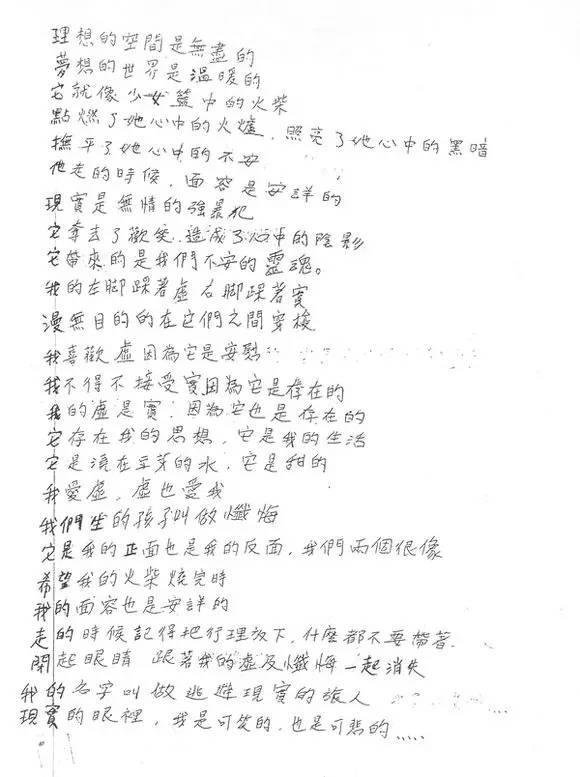 理想的空間是無盡的
夢想的世界是溫暖的
它就像少女籃中的火柴
點燃了她心中的火爐，照亮了她心中的黑暗
撫平了她心中的不安
他走的時候，面容是安詳的
現實是無情的強暴犯
它奪去了歡笑，造成了心中的陰影
它帶來的是我們不安的靈魂。
我的左脚踩著虛 右脚踩著實
漫無目的的在它們之間穿梭
我喜歡虛因為它是安慰
我不得不接受實因為它是存在的
我的虛是實，因為它也是存在的
它存在我的思想，它是我的生活
它是澆在豆芽的水，它是甜的
我愛虛，虛也愛我
我們生的孩子叫做懺悔
它是我的正面也是我的反面，我們兩個很像
希望我的火柴燒完時
我的面容也是安詳的
走的時候記得把行理放下，什麼都不要帶著，
閉起眼睛 跟著我的虛及懺悔一起消失
我的名字叫做逃避現實的旅人
現實的眼裡，我是可笑的，也是可悲的.....